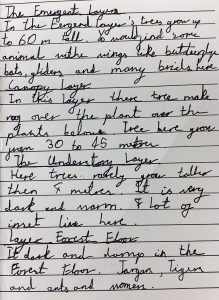 The Emergent Layer
In the Emergend layer's trees grow up
to 60 m tall & would find some
animal withe wings like butterflye
bats, gliders and many birds here
Canopy Layer
In this layer there tree make
roo over the plant over the
plants balow. Tree here grow
from 30 to 45 metre
The Understory Layer
Here trees rarely grow taller
then 4 metres. It is very
dark and warm. A lot of
inset live here.
layer Forest Floor
It dark and damp in the
Forest Floor. Jargon, Tiger
and ants and